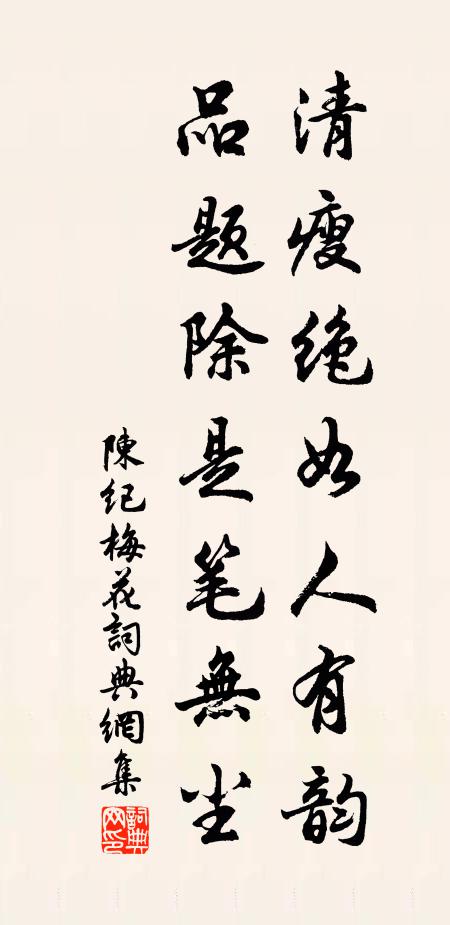 清瘦绝如人有韵
品题除是笔無尘
陳纪梅花詞典網集
詞典网印